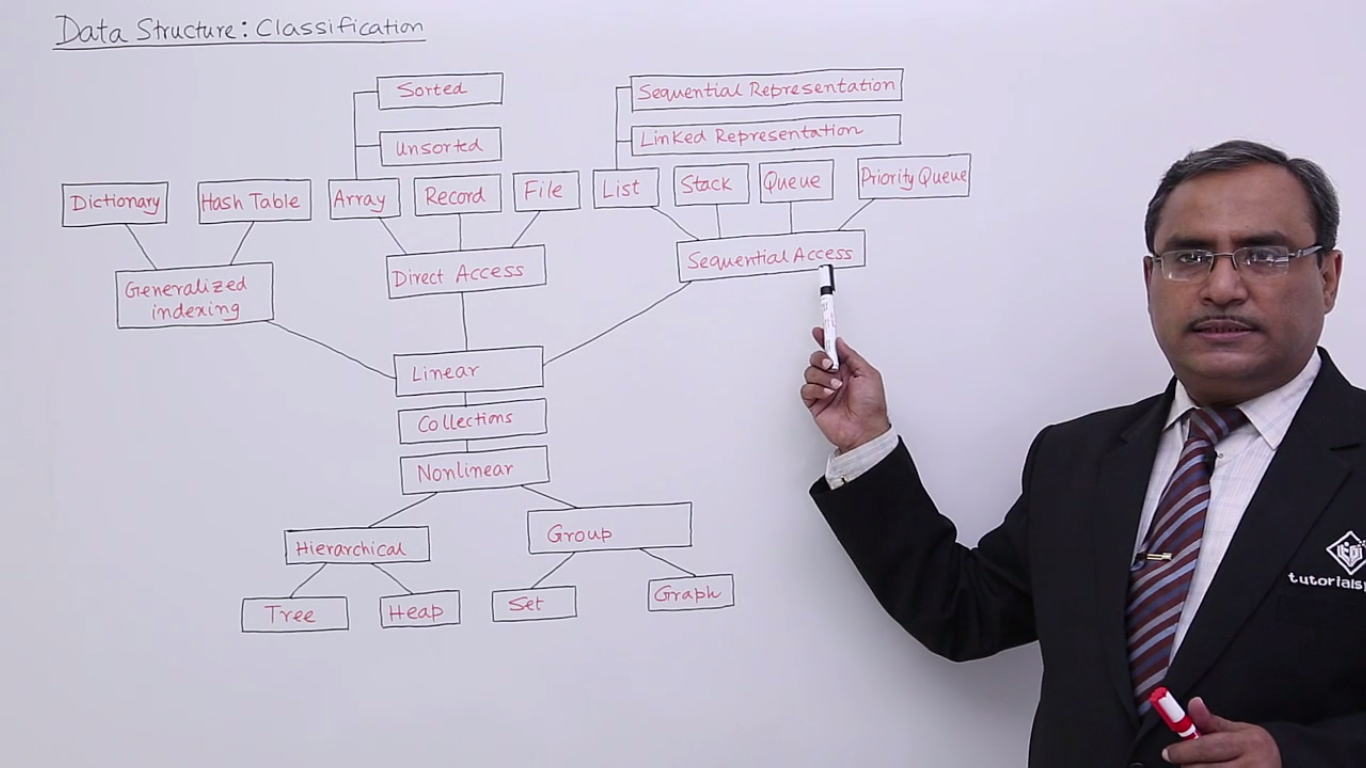 Data Structure: Classification
Sorted
Unsorted
Sequential Representation
Linked Representation
Dictionary
Hash Table
Array
Record
File
List
Stack
Queue
Priority Queue
Generalized
indexing
Direct Access
Sequential Access
Linear
Collections
Nonlinear
Hierarchical
Group
Tree
Heap
Set
Graph
tutorialsp